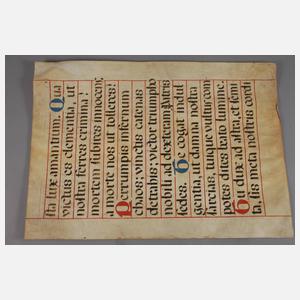 sta lux amantium. Qua
victus es clementia, ut
nostra ferres crimina!
mortem subires innocens,
a morte nos ut tolleres!
Perrumpis infernum
chaos: vinctis catenas
detrahis: victor triumpho
nobili ad dexteram Patris
sedes. Te cogat indul
gentia, ut damna nostra
sarcias, tuique vultus com
potes dites beato lumine.
Tu dux ad astra, et semi
ta, sis meta nostris cordi